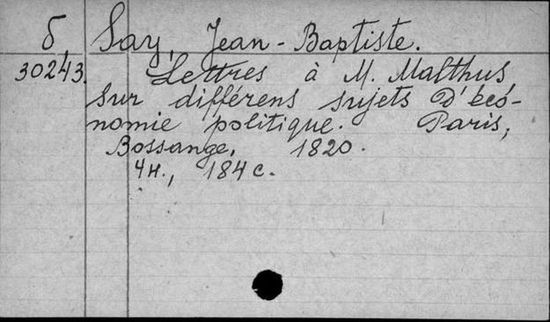 б, Say, Jean-Baptiste.
30243. Lettres à M. Malthus
sur différens sujets d'éco-
nomie politique. Paris,
Bossange, 1820.
4н., 184 с.